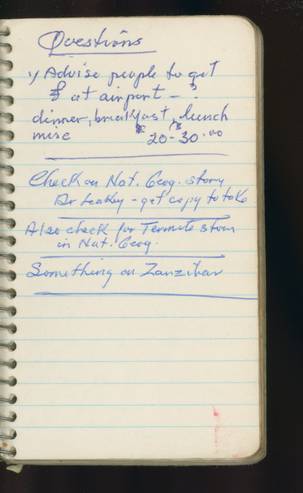 Questions
1) Advise people to get
£ at airport - ?
dinner, breakfast, lunch
misc $ 20-30.00
Check on Nat. Geog. story
Dr Leakey - get copy to take
Also check for Termite story
in Nat. Geog.
Something on Zanzibar